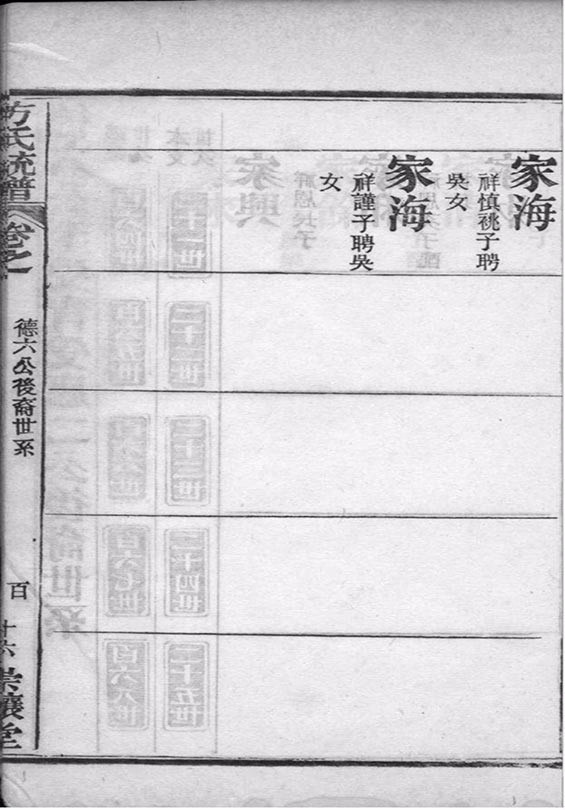 家海
祥慎祧子聘
吳女
家海
祥謹子聘吳
女
方氏統譜
卷之
德六公後裔世系
百
十六
堂